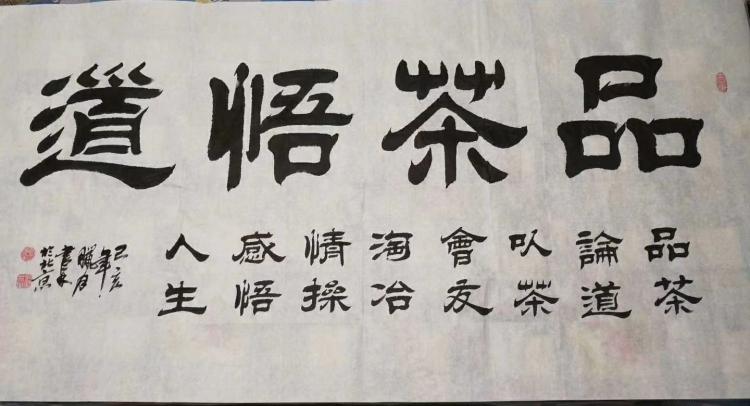 品茶悟道
品茶
論道
㕥茶
會友
淘冶
情操
感悟
人生
己亥
年
臘月
書
於北京